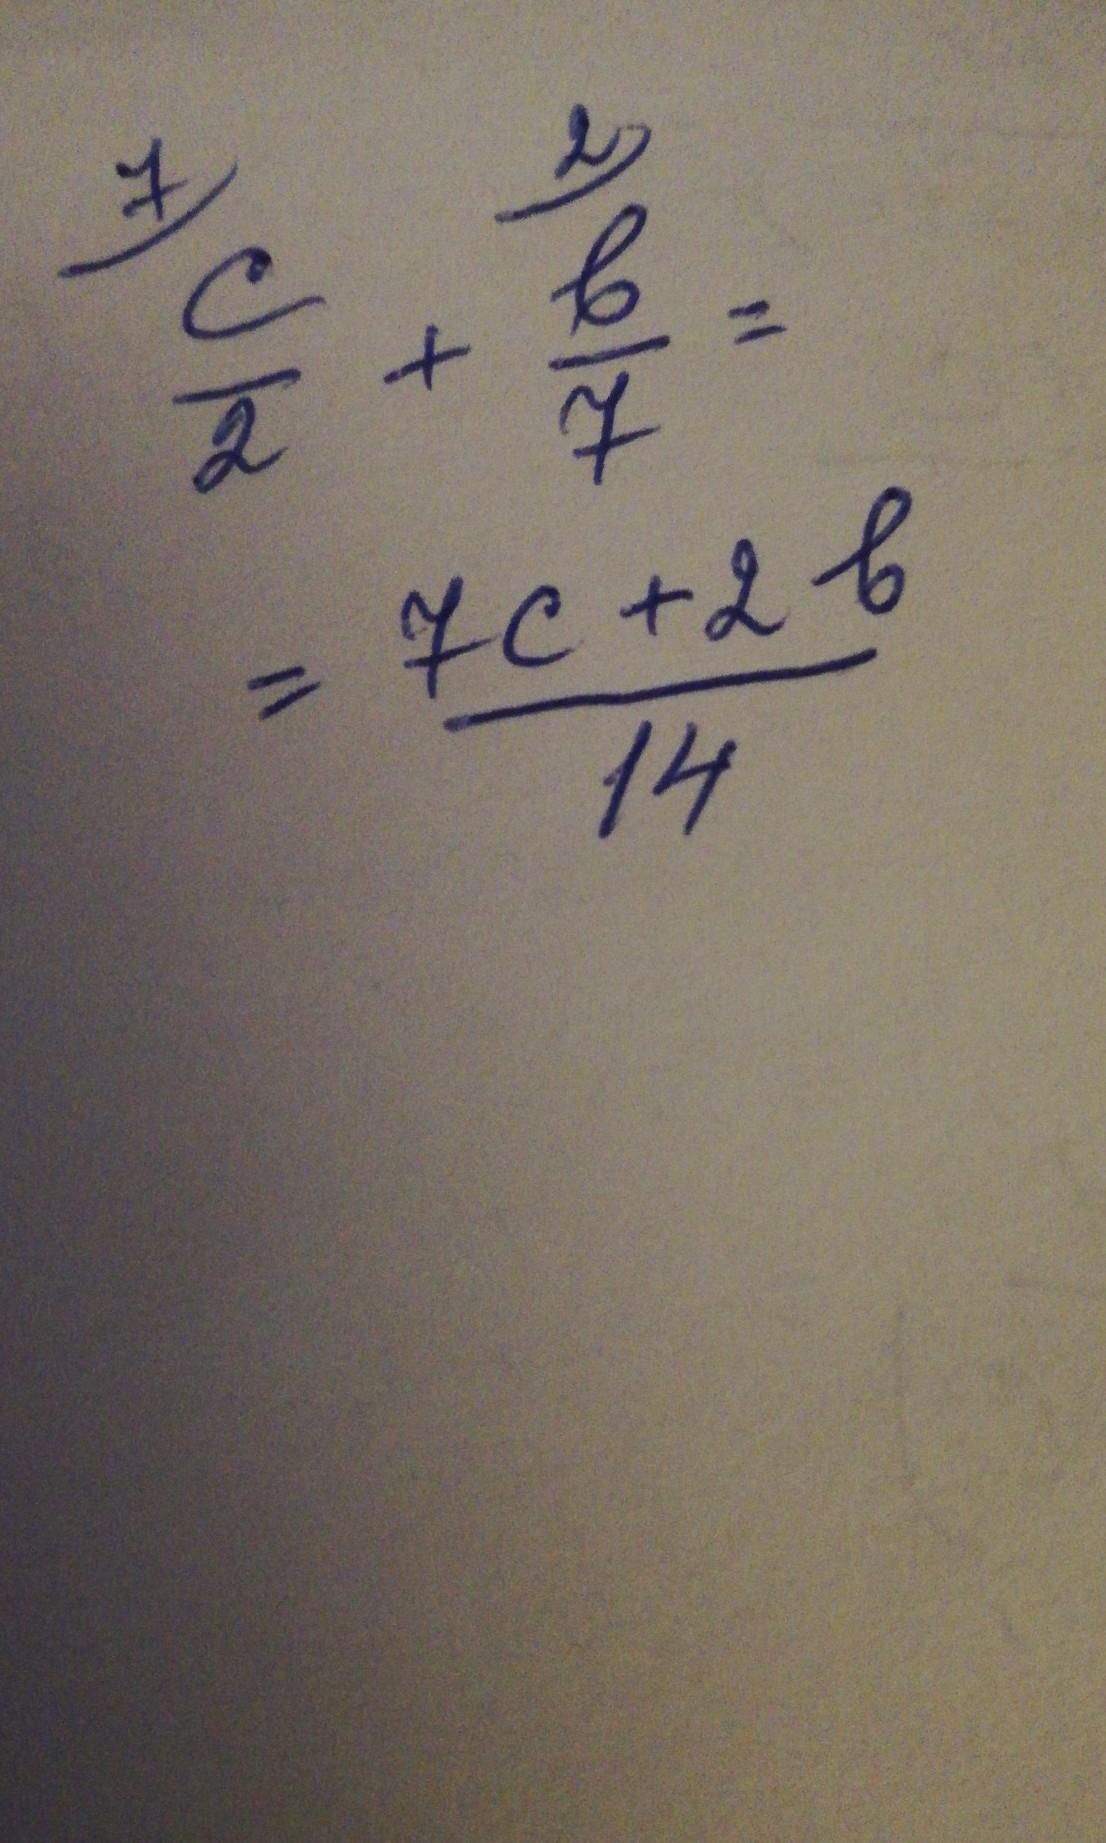 7) c/2 + 2) b/7 =
= (7c + 2b)/14